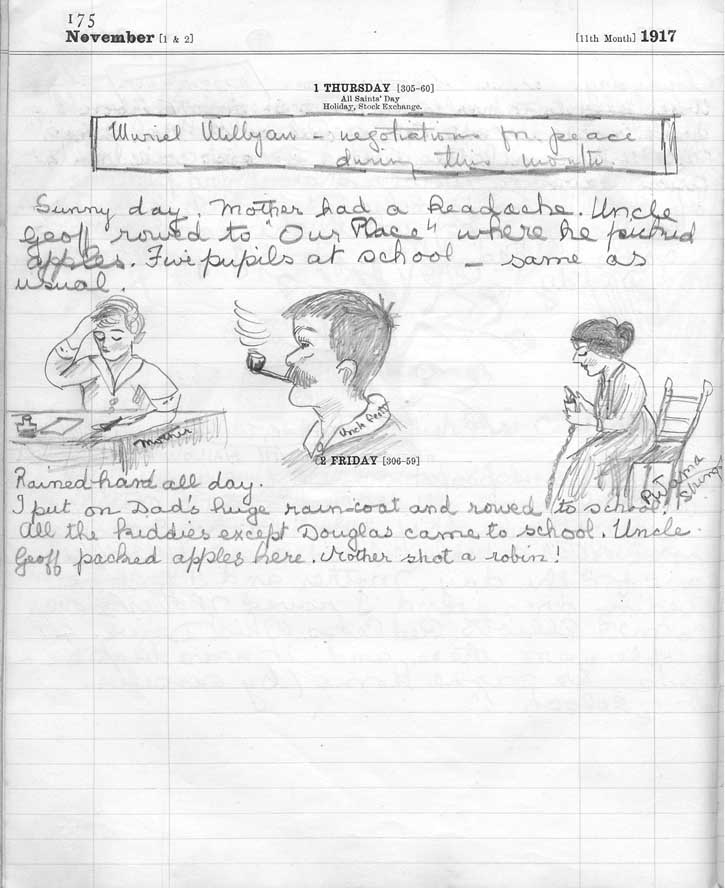 175
November [1 & 2] [11th Month] 1917
1 THURSDAY [305-60]
All Saints' Day
Holiday, Stock Exchange.
Muriel - negotiations for peace
during this month.
Sunny day. Mother had a headache. Uncle
Geoff rowed to "Our Place" where he picked
apples. Five pupils at school - same as
usual.
Mother
Uncle
2 FRIDAY [306-59]
Rained hard all day.
I put on Dad's huge rain-coat and rowed to school.
All the kiddies except Douglas came to school. Uncle
Geoff packed apples here. Mother shot a robin!